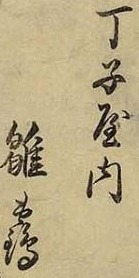 丁子屋内
雛鶴